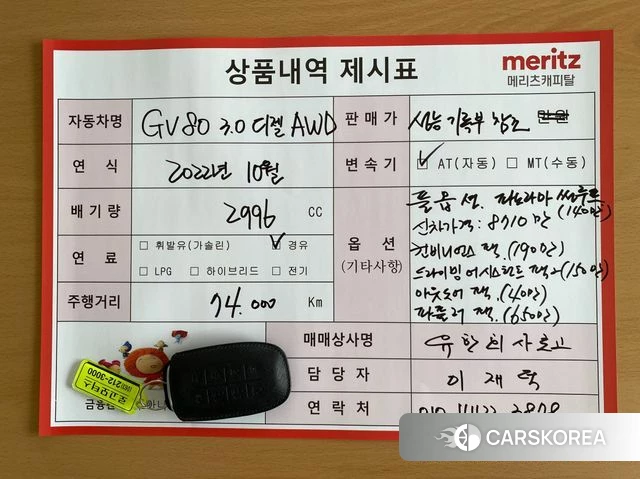 상품내역 제시표
meritz
메리츠캐피탈
자동차명 GV80 3.0 디젤 AWD
판매가 성능기록부 참조 만원
연식 2022년 10월
변속기 ☑ AT(자동) □ MT(수동)
배기량 2996 CC
연료 □ 휘발유(가솔린) ☑ 경유
□ LPG □ 하이브리드 □ 전기
주행거리 74.000 Km
옵션
(기타사항)
풀옵션. 파노라마 썬루프
(140만)
신차가격: 8710만
컨비니언스 팩.(190만)
드라이빙 어시스턴트 팩2(150만)
아웃도어 팩.(40만)
파퓰러 팩.(650만)
매매상사명
담당자 이재혁
연락처
212-3000
금융
CARSKOREA